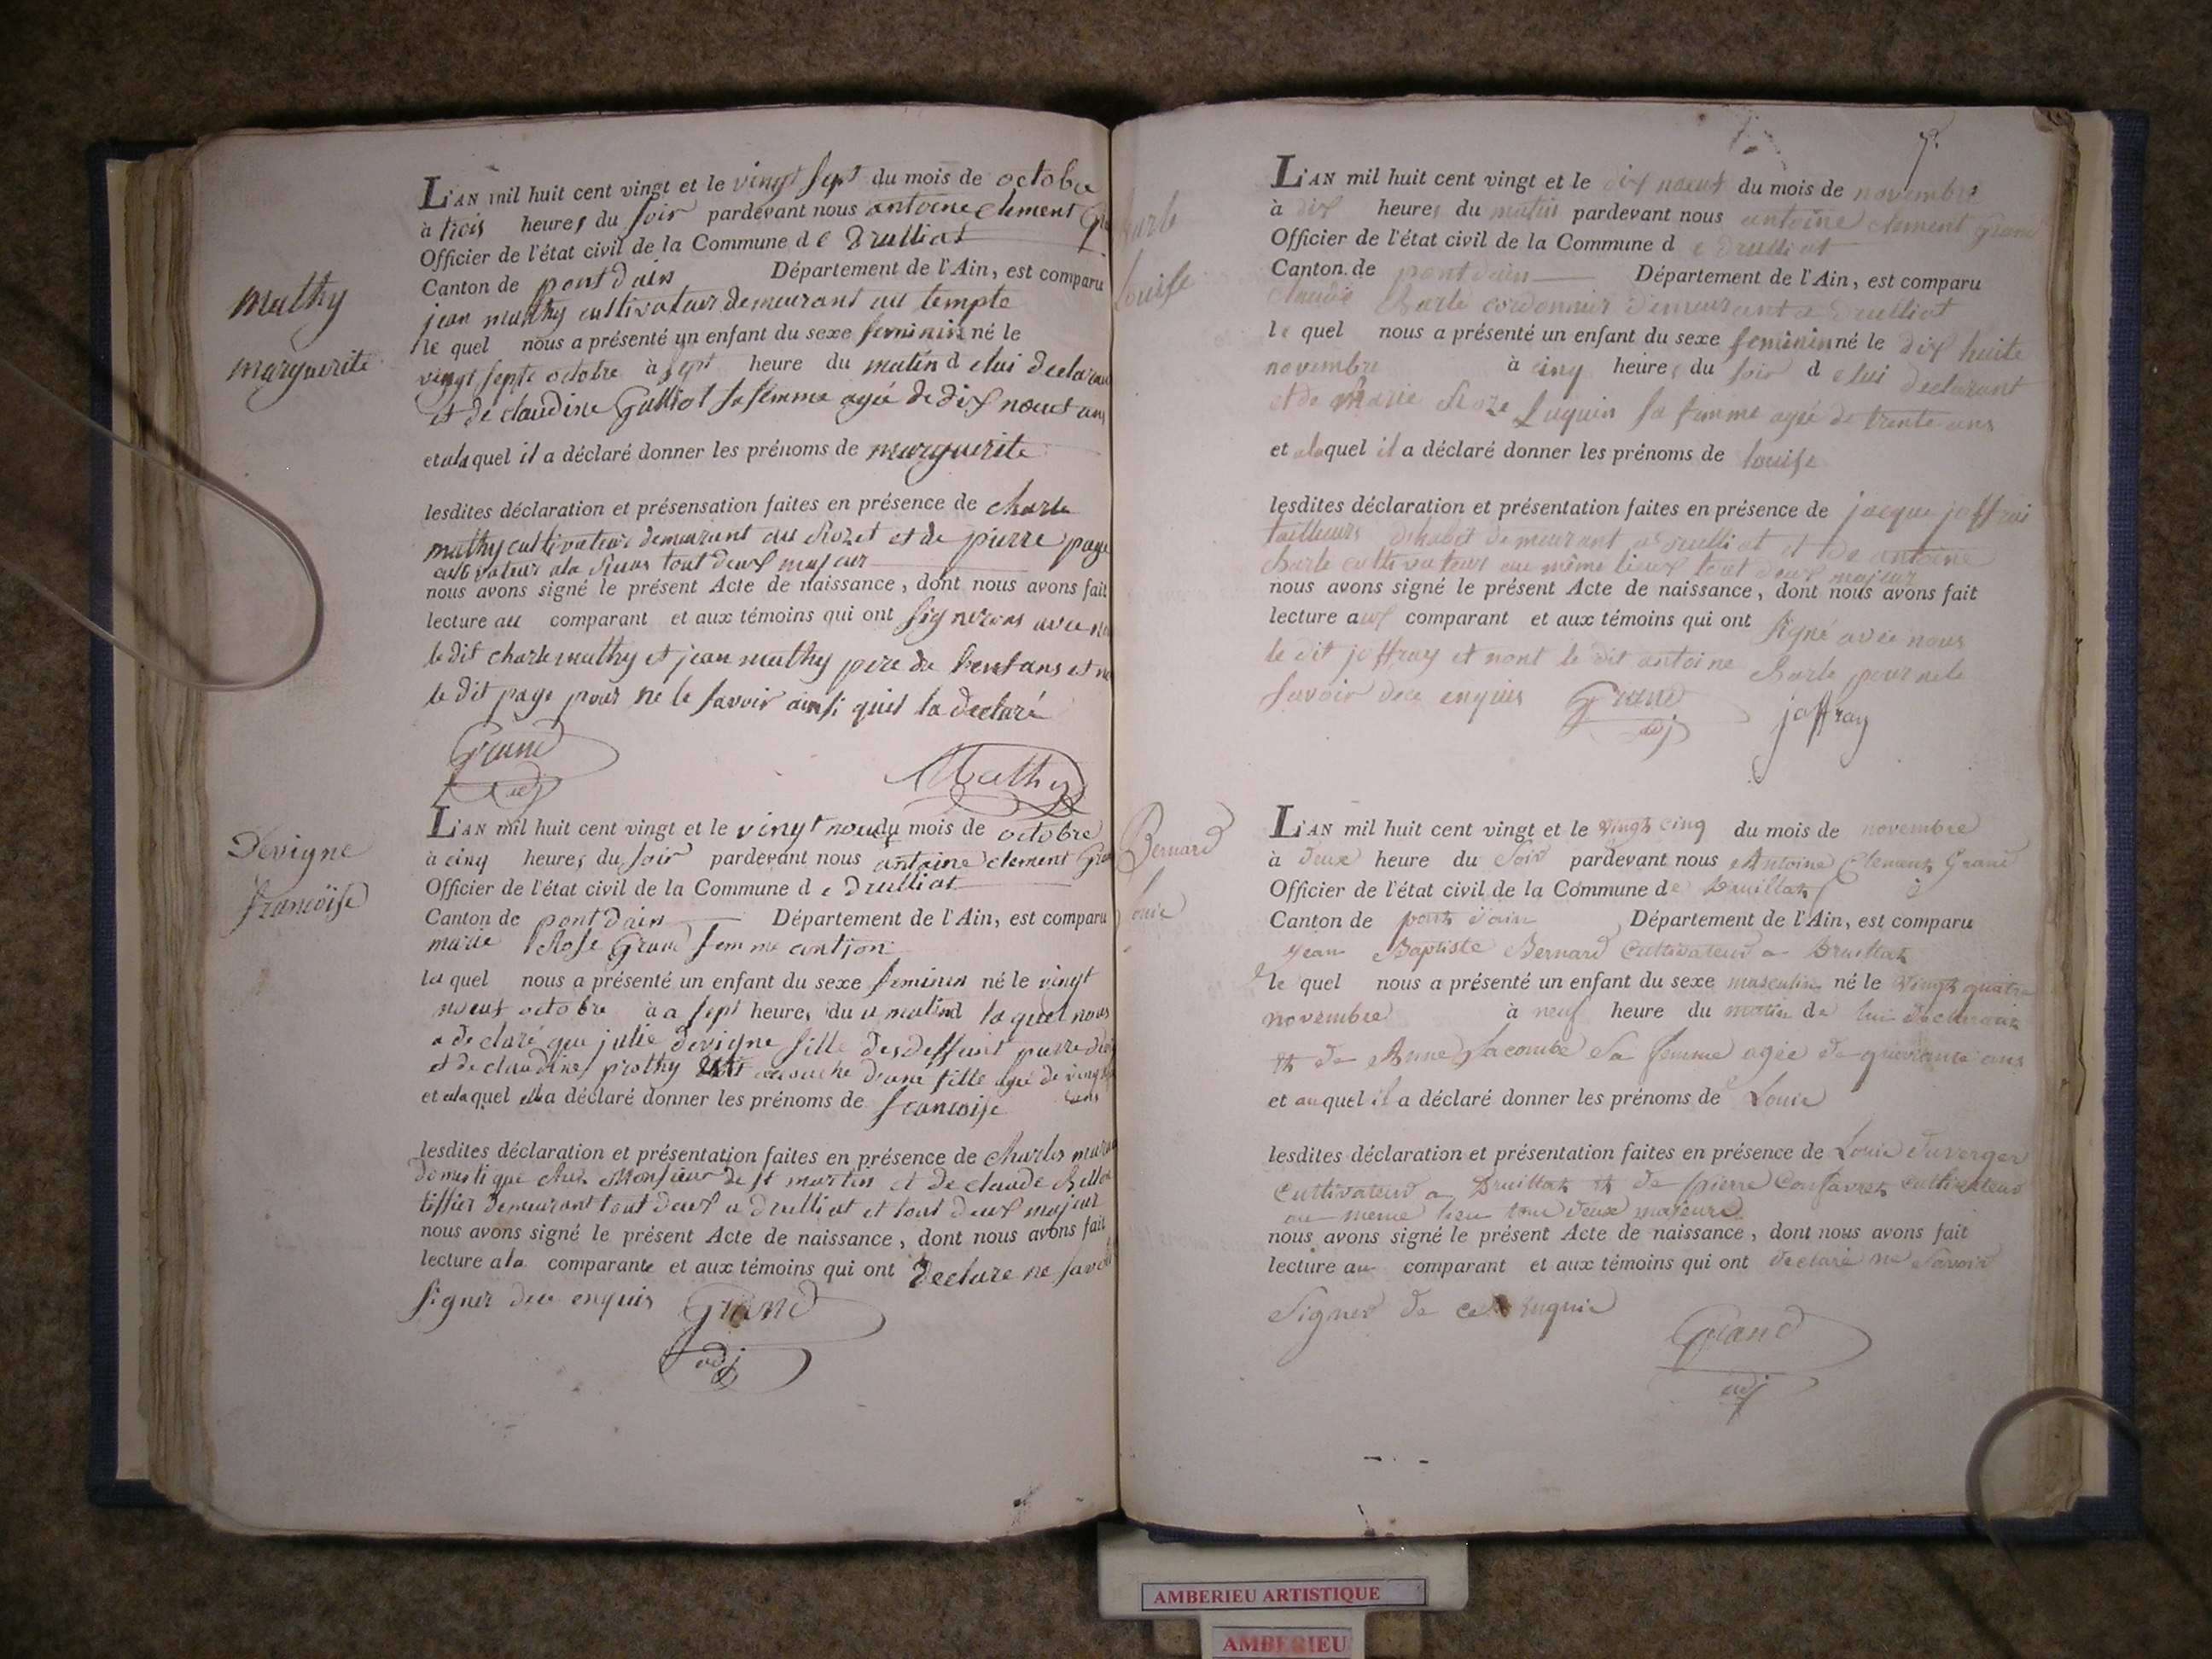 mathy
marguerite
L'AN mil huit cent vingt et le vingt sept du mois de octobre
à trois heures du soir pardevant nous antoine clement
Officier de l'état civil de la Commune d e Drulliat
Canton de pont dain Département de l'Ain, est comparu
jean mathy cultivateur demeurant au temple
le quel nous a présenté un enfant du sexe feminin né le
vingt septe octobre à sept heure du matin d elui declarant
et de claudine Gulliot sa femme agée de dix noeuf ans
et ala quel il a déclaré donner les prénoms de marguerite
lesdites déclaration et présensation faites en présence de charle
mathy cultivateur demeurant au et de pierre page
cultivateur ala tout deux majeur
nous avons signé le présent Acte de naissance, dont nous avons fait
lecture au comparant et aux témoins qui ont
le dit charle mathy et jean mathy pere de trent ans et
le dit page pour ne le savoir ainsi quil la declaré
Grand
adj
Mathy
Devigne
francoise
L'AN mil huit cent vingt et le vingt noeuf du mois de octobre
à cinq heures du soir pardevant nous antoine clement
Officier de l'état civil de la Commune d e Drulliat
Canton de pont dain Département de l'Ain, est comparu
marie Rose Grand femme
la quel nous a présenté un enfant du sexe feminin né le vingt
noeuf octobre à a sept heures du u matin d la quel nous
a declaré que julie devigne fille des deffunt pierre
et de claudine prothy accouche d'une fille agé de
et ala quel ella a déclaré donner les prénoms de francoise
lesdites déclaration et présentation faites en présence de charles
domestique chez Monsieur de st martin et de claude
tissier demeurant tout deux a drulliat et tout deux majeur
nous avons signé le présent Acte de naissance, dont nous avons fait
lecture a la comparante et aux témoins qui ont declare ne savoir
signer dece enquis Grand
adj
charle
louise
L'AN mil huit cent vingt et le dix noeuf du mois de novembre
à dix heures du matin pardevant nous antoine clement grand
Officier de l'état civil de la Commune d e drulliat
Canton de pont dain Département de l'Ain, est comparu
claude charle cordonnier demeurant a drulliat
le quel nous a présenté un enfant du sexe feminin né le dix huite
novembre à cinq heures du soir d elui declarant
et de marie Roze Luquin sa femme agée de trente ans
et ala quel il a déclaré donner les prénoms de louise
lesdites déclaration et présentation faites en présence de jacque joffrai
tailleurs dhabit demeurant a drulliat et de antoine
charle cultivateur au même lieux tout deux majeur
nous avons signé le présent Acte de naissance, dont nous avons fait
lecture aux comparant et aux témoins qui ont signé avec nous
le dit joffray et nont le dit antoine charle pour nele
savoir dece enquis Grand
adj
joffray
Bernard
Louis
L'AN mil huit cent vingt et le vingt cinq du mois de novembre
à deux heure du soir pardevant nous Antoine Clement Grand
Officier de l'état civil de la Commune de Druillat
Canton de pont d'ain Département de l'Ain, est comparu
Jean Baptiste Bernard Cultivateur a Druillat
le quel nous a présenté un enfant du sexe masculin né le vingt quatre
novembre à neuf heure du matin de lui declarant
et de Anne Lacombe Sa femme agée de quarante ans
et au quel il a déclaré donner les prénoms de Louis
lesdites déclaration et présentation faites en présence de Louis duverger
Cultivateur a Druillat et de pierre Confavret cultivateur
au meme lieu tous deux majeurs
nous avons signé le présent Acte de naissance, dont nous avons fait
lecture au comparant et aux témoins qui ont declaré ne Savoir
Signer de ce enquis
Grand
adj
AMBERIEU ARTISTIQUE
AMBERIEU